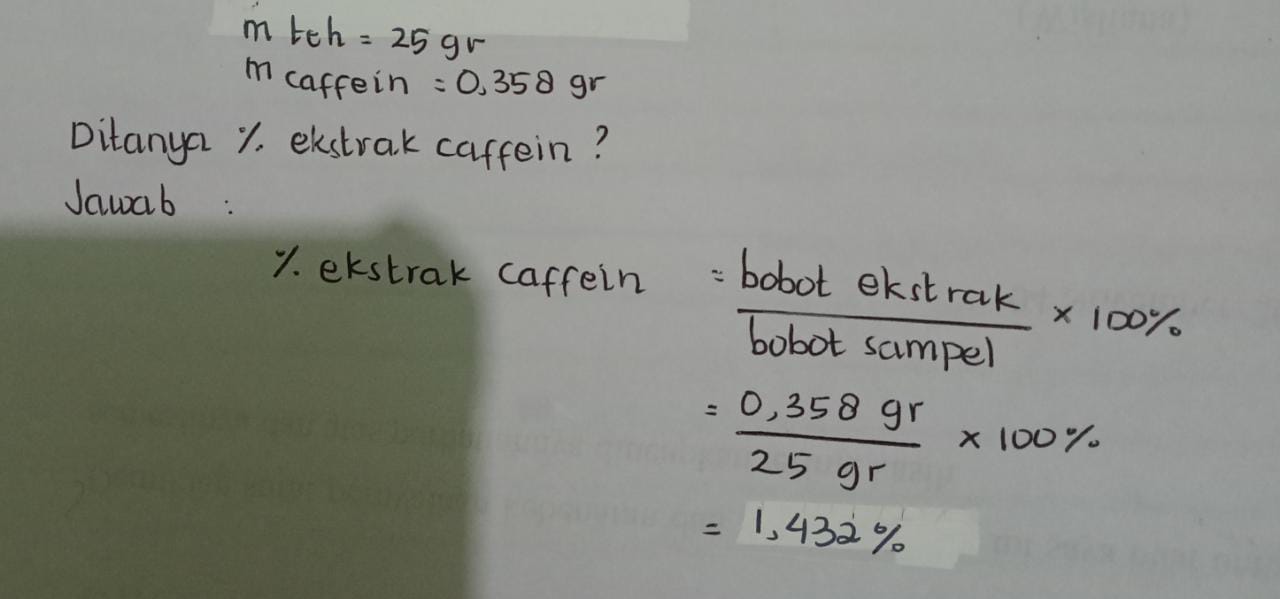 m teh = 25 gr
m caffein = 0,358 gr
Ditanya % ekstrak caffein ?
Jawab :
% ekstrak caffein = bobot ekstrak
bobot sampel × 100%
= 0,358 gr
25 gr × 100%
= 1,432%